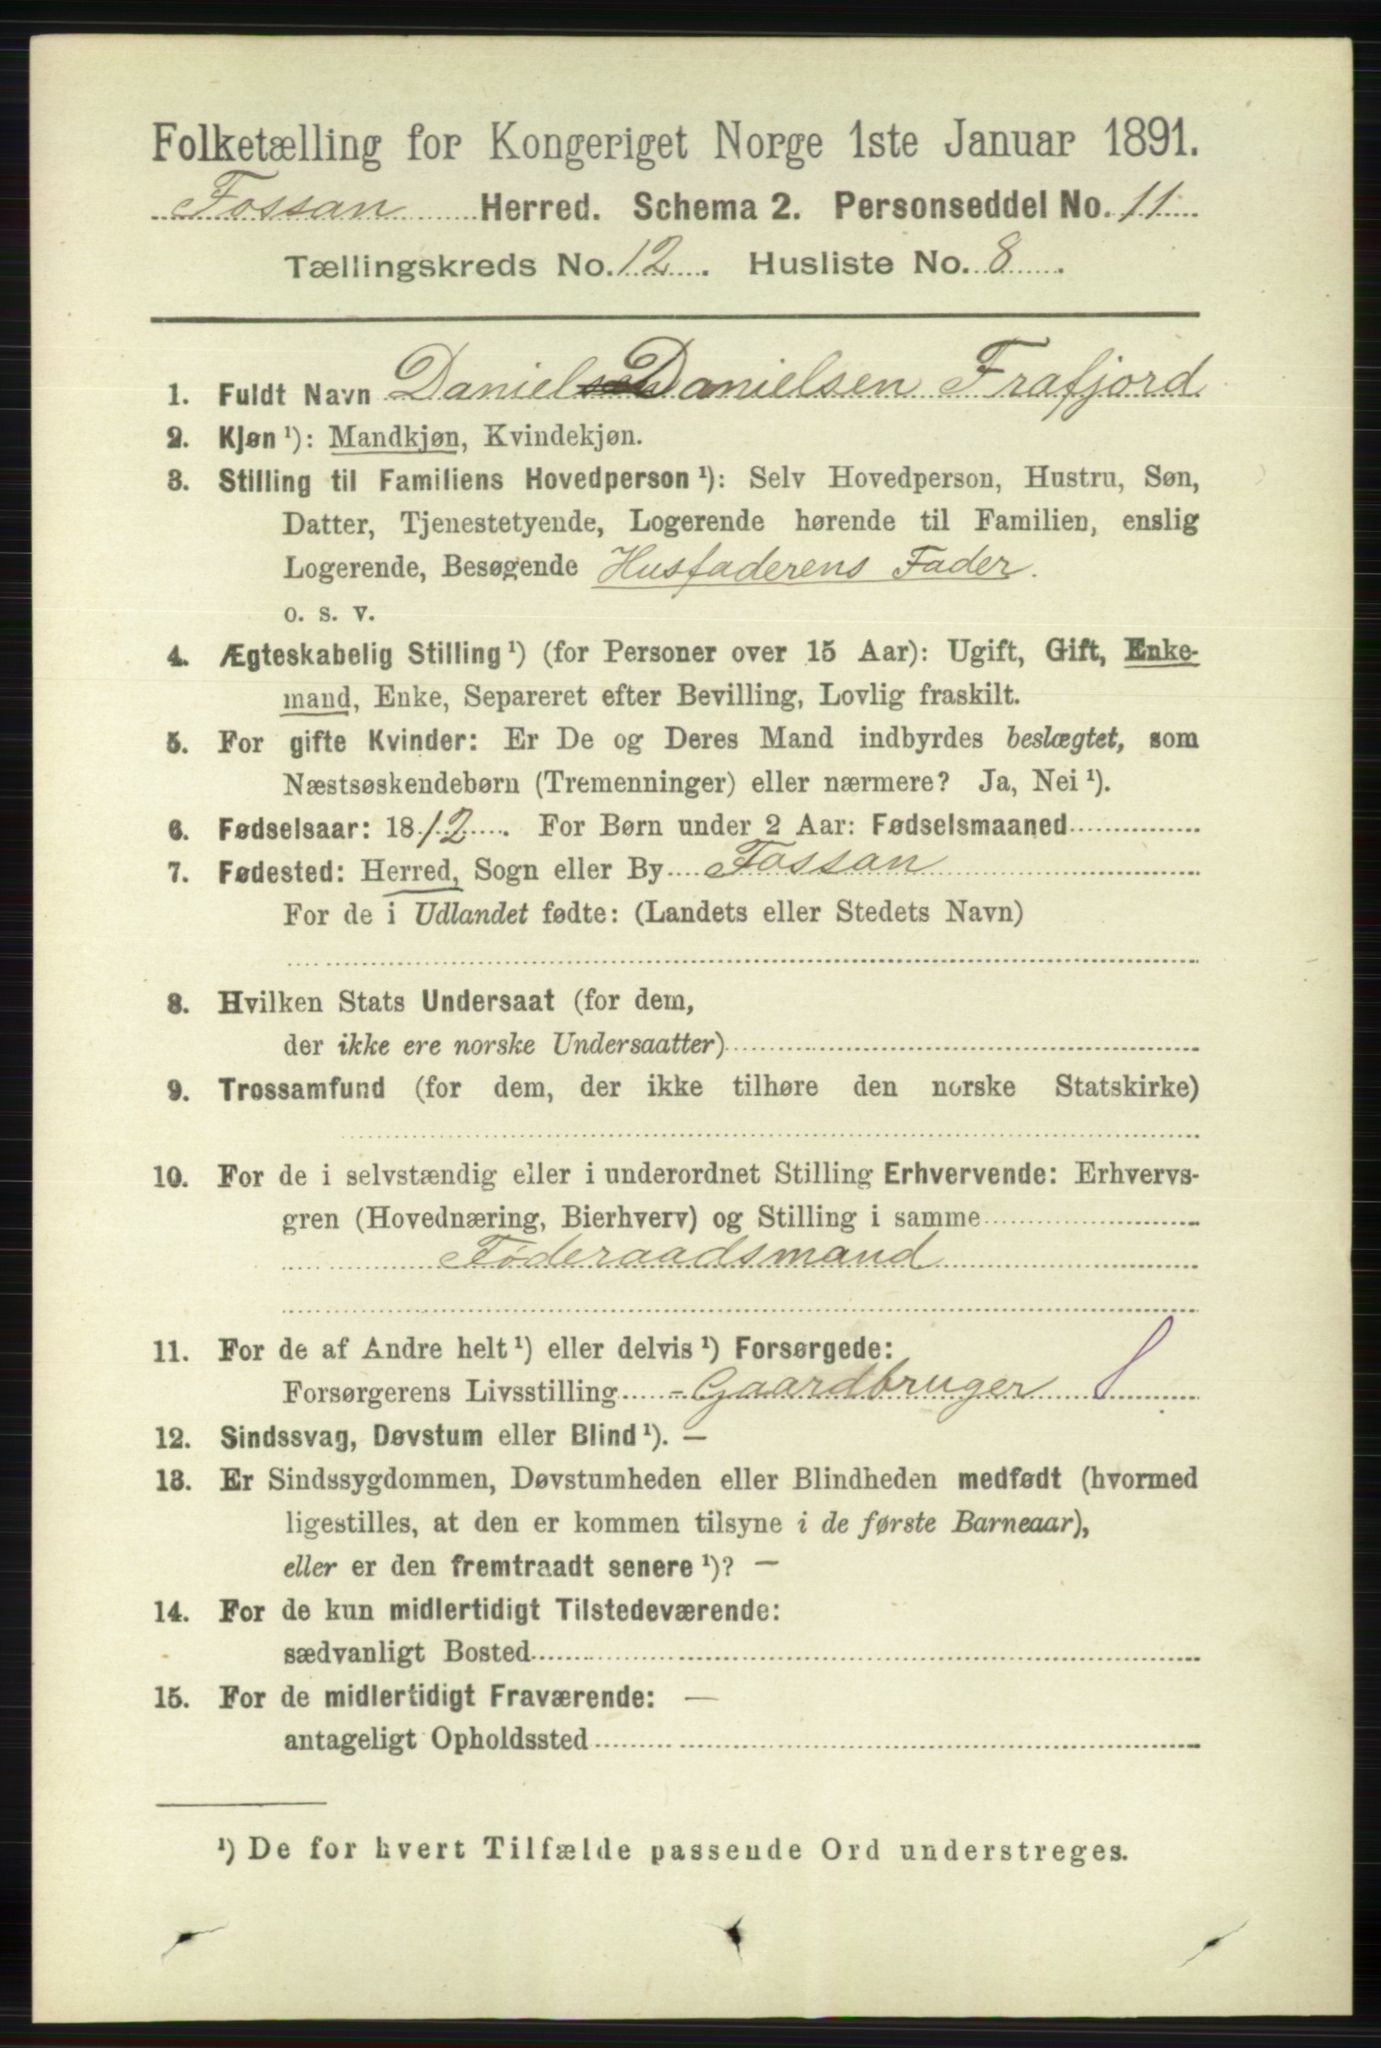 Folketælling for Kongeriget Norge 1ste Januar 1891.
Fossan Herred. Schema 2. Personseddel No. 11
Tællingskreds No. 12. Husliste No. 8.
1. Fuldt Navn Daniel Danielsen Frafjord
2. Kjøn ¹): Mandkjøn, Kvindekjøn.
3. Stilling til Familiens Hovedperson ¹): Selv Hovedperson, Hustru, Søn,
Datter, Tjenestetyende, Logerende hørende til Familien, enslig
Logerende, Besøgende Husfaderens Fader.
o. s. v.
4. Ægteskabelig Stilling ¹) (for Personer over 15 Aar): Ugift, Gift, Enke-
mand, Enke, Separeret efter Bevilling, Lovlig fraskilt.
5. For gifte Kvinder: Er De og Deres Mand indbyrdes beslægtet, som
Næstsøskendebørn (Tremenninger) eller nærmere? Ja, Nei ¹).
6. Fødselsaar: 1812. For Børn under 2 Aar: Fødselsmaaned
7. Fødested: Herred, Sogn eller By Fossan
For de i Udlandet fødte: (Landets eller Stedets Navn)
8. Hvilken Stats Undersaat (for dem,
der ikke ere norske Undersaatter)
9. Trossamfund (for dem, der ikke tilhøre den norske Statskirke)
10. For de i selvstændig eller i underordnet Stilling Erhvervende: Erhvervs-
gren (Hovednæring, Bierhverv) og Stilling i samme
Føderaadsmand
11. For de af Andre helt ¹) eller delvis ¹) Forsørgede:
Forsørgerens Livsstilling - Gaardbruger
12. Sindssvag, Døvstum eller Blind ¹). —
13. Er Sindssygdommen, Døvstumheden eller Blindheden medfødt (hvormed
ligestilles, at den er kommen tilsyne i de første Barneaar),
eller er den fremtraadt senere ¹)? —
14. For de kun midlertidigt Tilstedeværende:
sædvanligt Bosted
15. For de midlertidigt Fraværende: —
antageligt Opholdssted
¹) De for hvert Tilfælde passende Ord understreges.